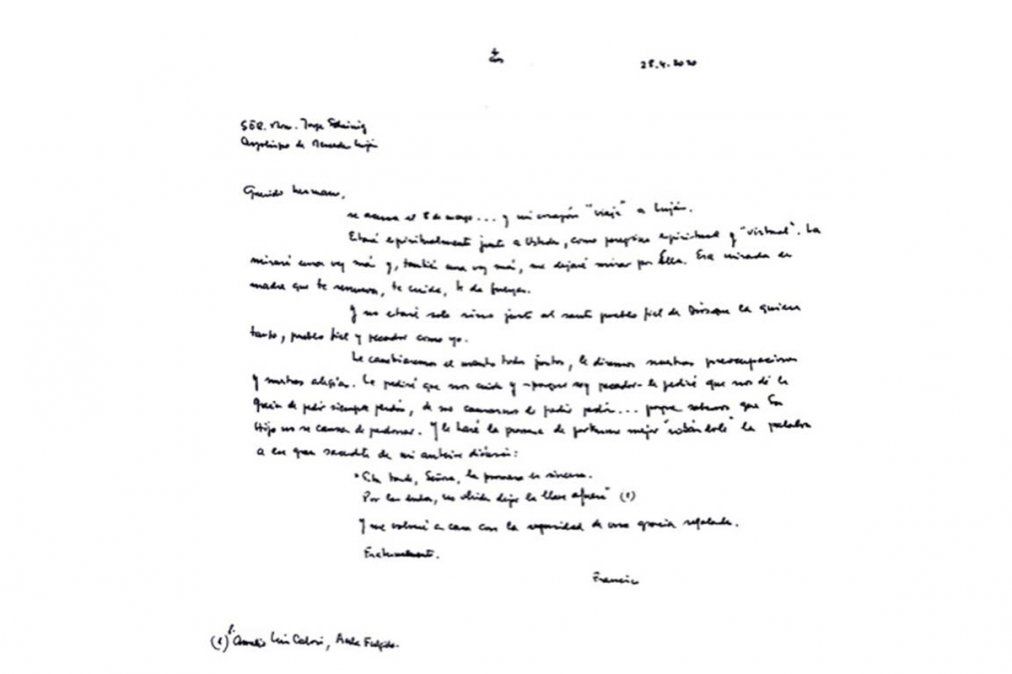 28.4.2020
S.E.R. Mons. Jorge Scheinig
Arzobispo de Mercedes Luján
Querido hermano,
se acerca el 8 de mayo... y mi corazón "viaja" a Luján.
Estaré espiritualmente junto a Ustedes, como peregrino espiritual y "virtual". La
miraré una vez más y, también una vez más, me dejaré mirar por Ella. Esa mirada de
madre que te renueva, te cuida, te da fuerzas.
Y no estaré solo sino junto al santo pueblo fiel de Dios que la quiere
tanto, pueblo fiel y pecador como yo.
Le cantaremos el todos juntos, le diremos nuestras preocupaciones
y nuestras alegrías. Le pediré que nos cuide y -porque soy pecador- le pediré que nos dé la
gracia de pedir siempre perdón, de no cansarnos de pedir perdón... porque sabemos que Su
Hijo no se cansa de perdonar. Y le haré la promesa de portarme mejor "robándole" la palabra
a un gran sacerdote de mi anterior diócesis:
"Esta tarde, Señora, la promesa es sincera.
Por las dudas, no olvides dejar la llave afuera" (1)
Y me volveré a casa con la seguridad de una gracia regalada.
Fraternalmente.
Francisco
(1) P. Amelio Luis Calori, Aula Fúlgida.